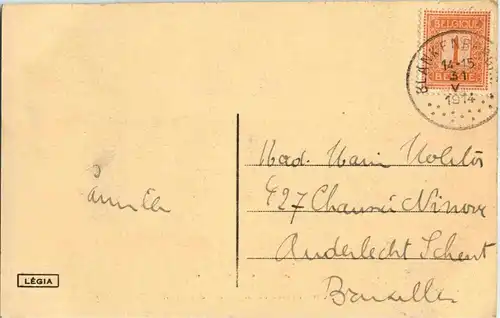 BELGIQUE
1
BELGIË
BLANKENBERGHE
14-15
31
V
1914
Mad.
427 Chaussée Ninove
Anderlecht Scheut
Bruxelles
LÉGIA